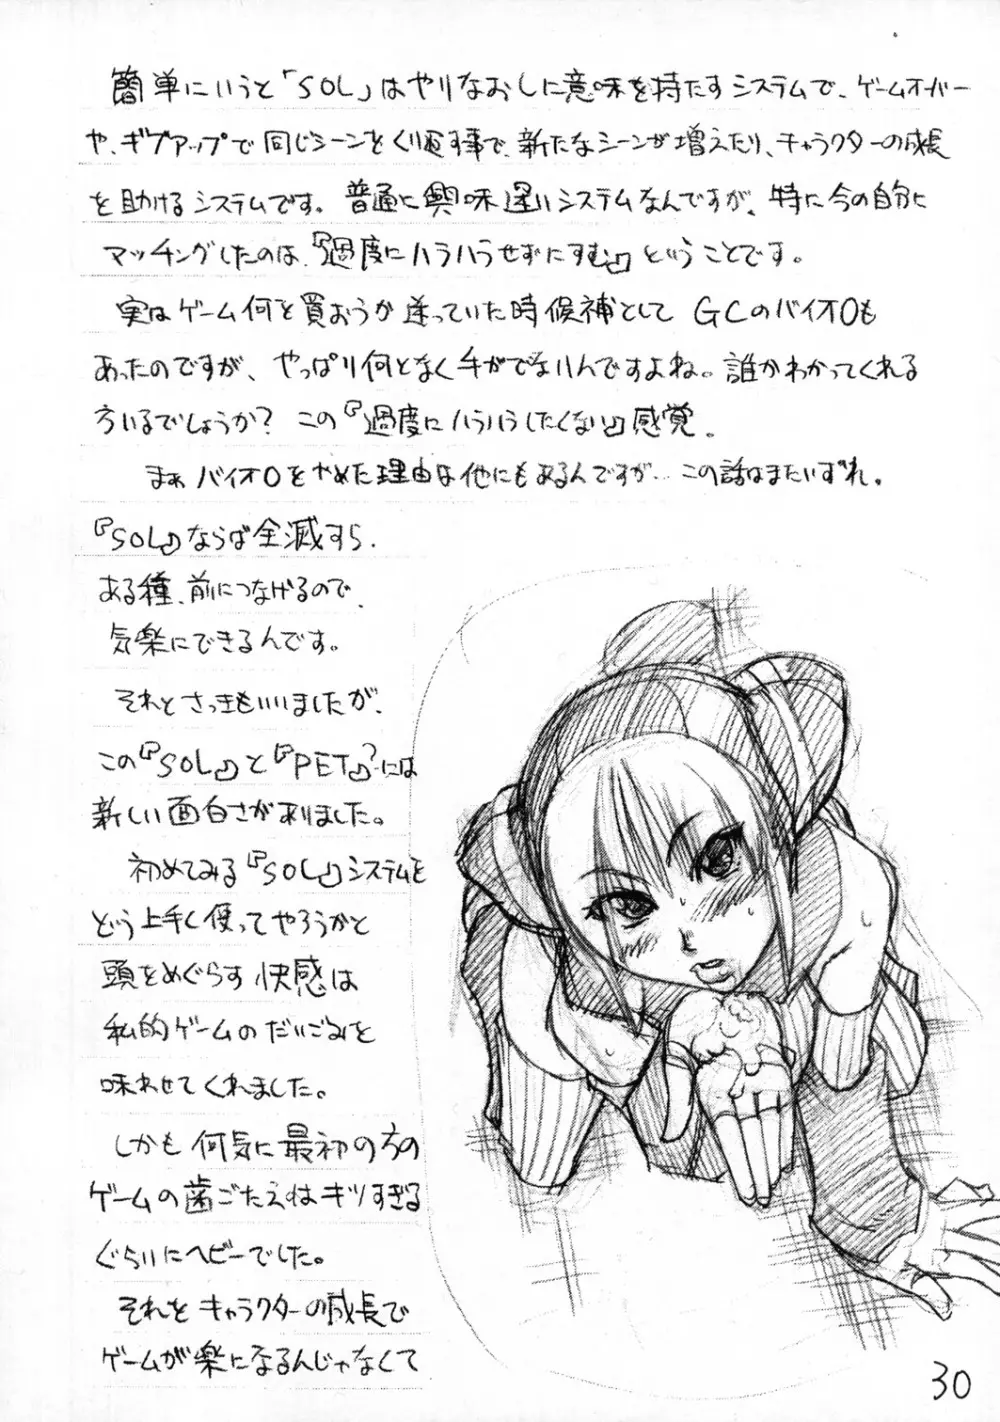 簡単にいうと「SOL」はやりなおしに意味を持たすシステムで、ゲームオーバー
や、ギブアップで同じシーンをくり返す事で、新たなシーンが増えたり、キャラクターの成長
を助けるシステムです。普通に興味深いシステムなんですが、特に今の自分に
マッチングしたのは、『過度にハラハラせずにすむ』ということです。
実はゲーム何を買おうか迷っていた時候補として GCのバイオ0も
あったのですが、やっぱり何となく手がでないんですよね。誰かわかってくれる
方いるでしょうか?この『過度にハラハラしたくない』感覚。
まぁバイオ0をやめた理由は他にもあるんですが…この話はまたいずれ。
『SOL』ならば全滅すら、
ある種、前につなげるので、
気楽にできるんです。
それとさっきもいいましたが、
この『SOL』と『PET』?には
新しい面白さがありました。
初めてみる『SOL』システムを
どう上手く使ってやろうかと
頭をめぐらす快感は
私的ゲームのだいごみを
味わせてくれました。
しかも何気に最初の方の
ゲームの歯ごたえはキツすぎる
ぐらいにヘビーでした。
それをキャラクターの成長で
ゲームが楽になるんじゃなくて
30